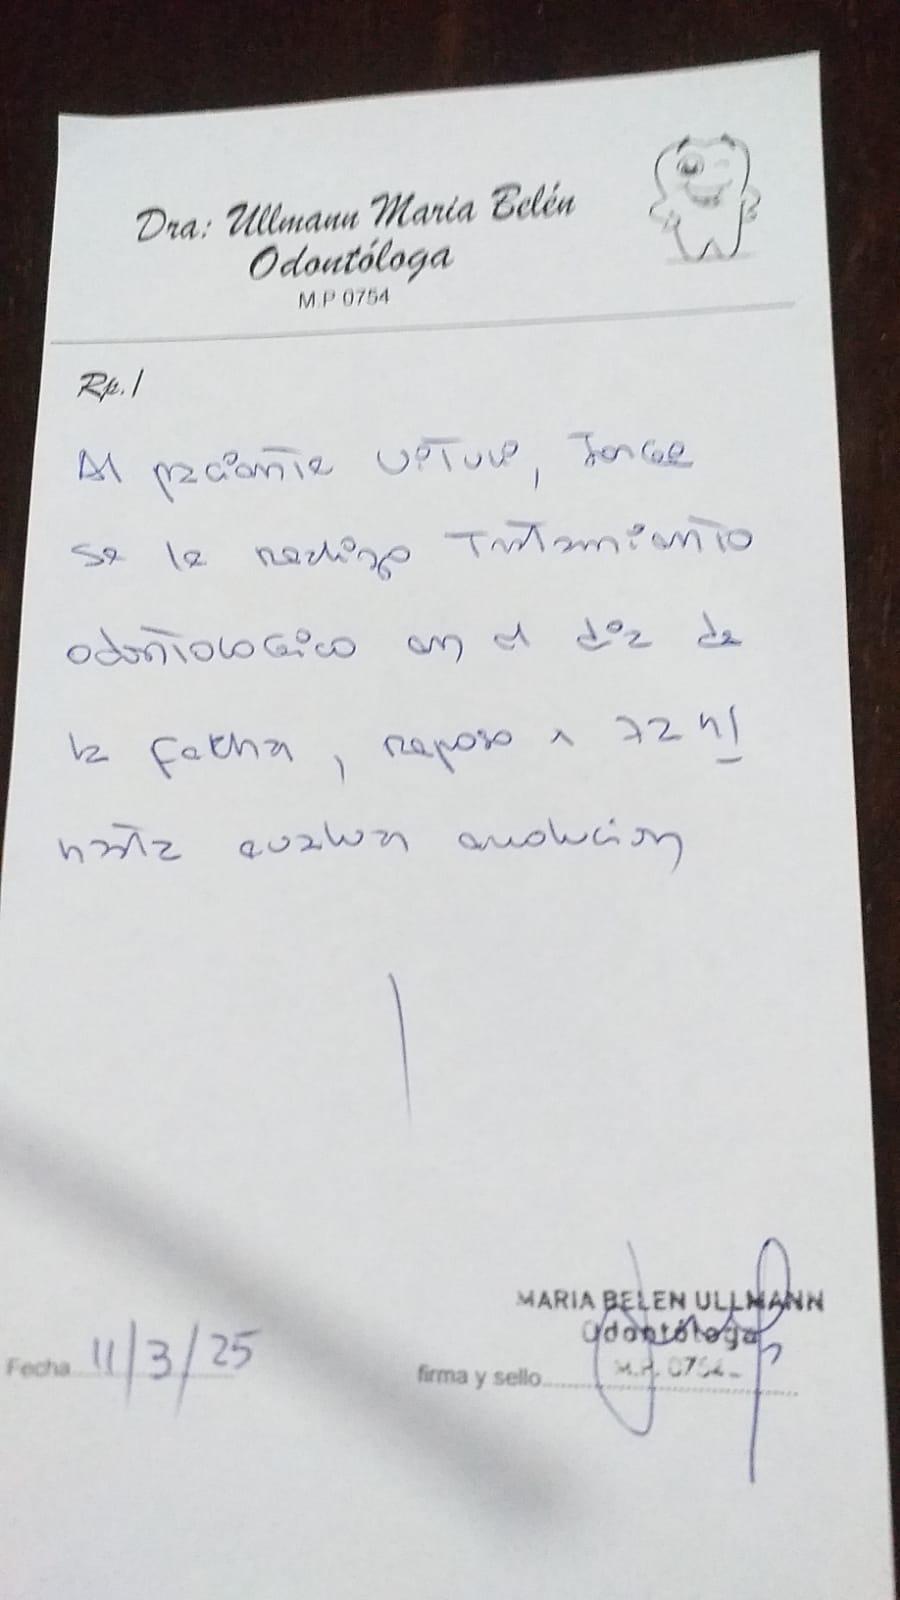 Dra: Ullmann Maria Belén
Odontóloga
M.P 0754
Rp./
Al paciente Jorge
se le realizo Tratamiento
odontologico en el dia de
la fecha, reposo x 72 hs
hasta evaluar evolucion
MARIA BELEN ULLMANN
Odontóloga
M.P. 0754
Fecha 11/3/25
firma y sello